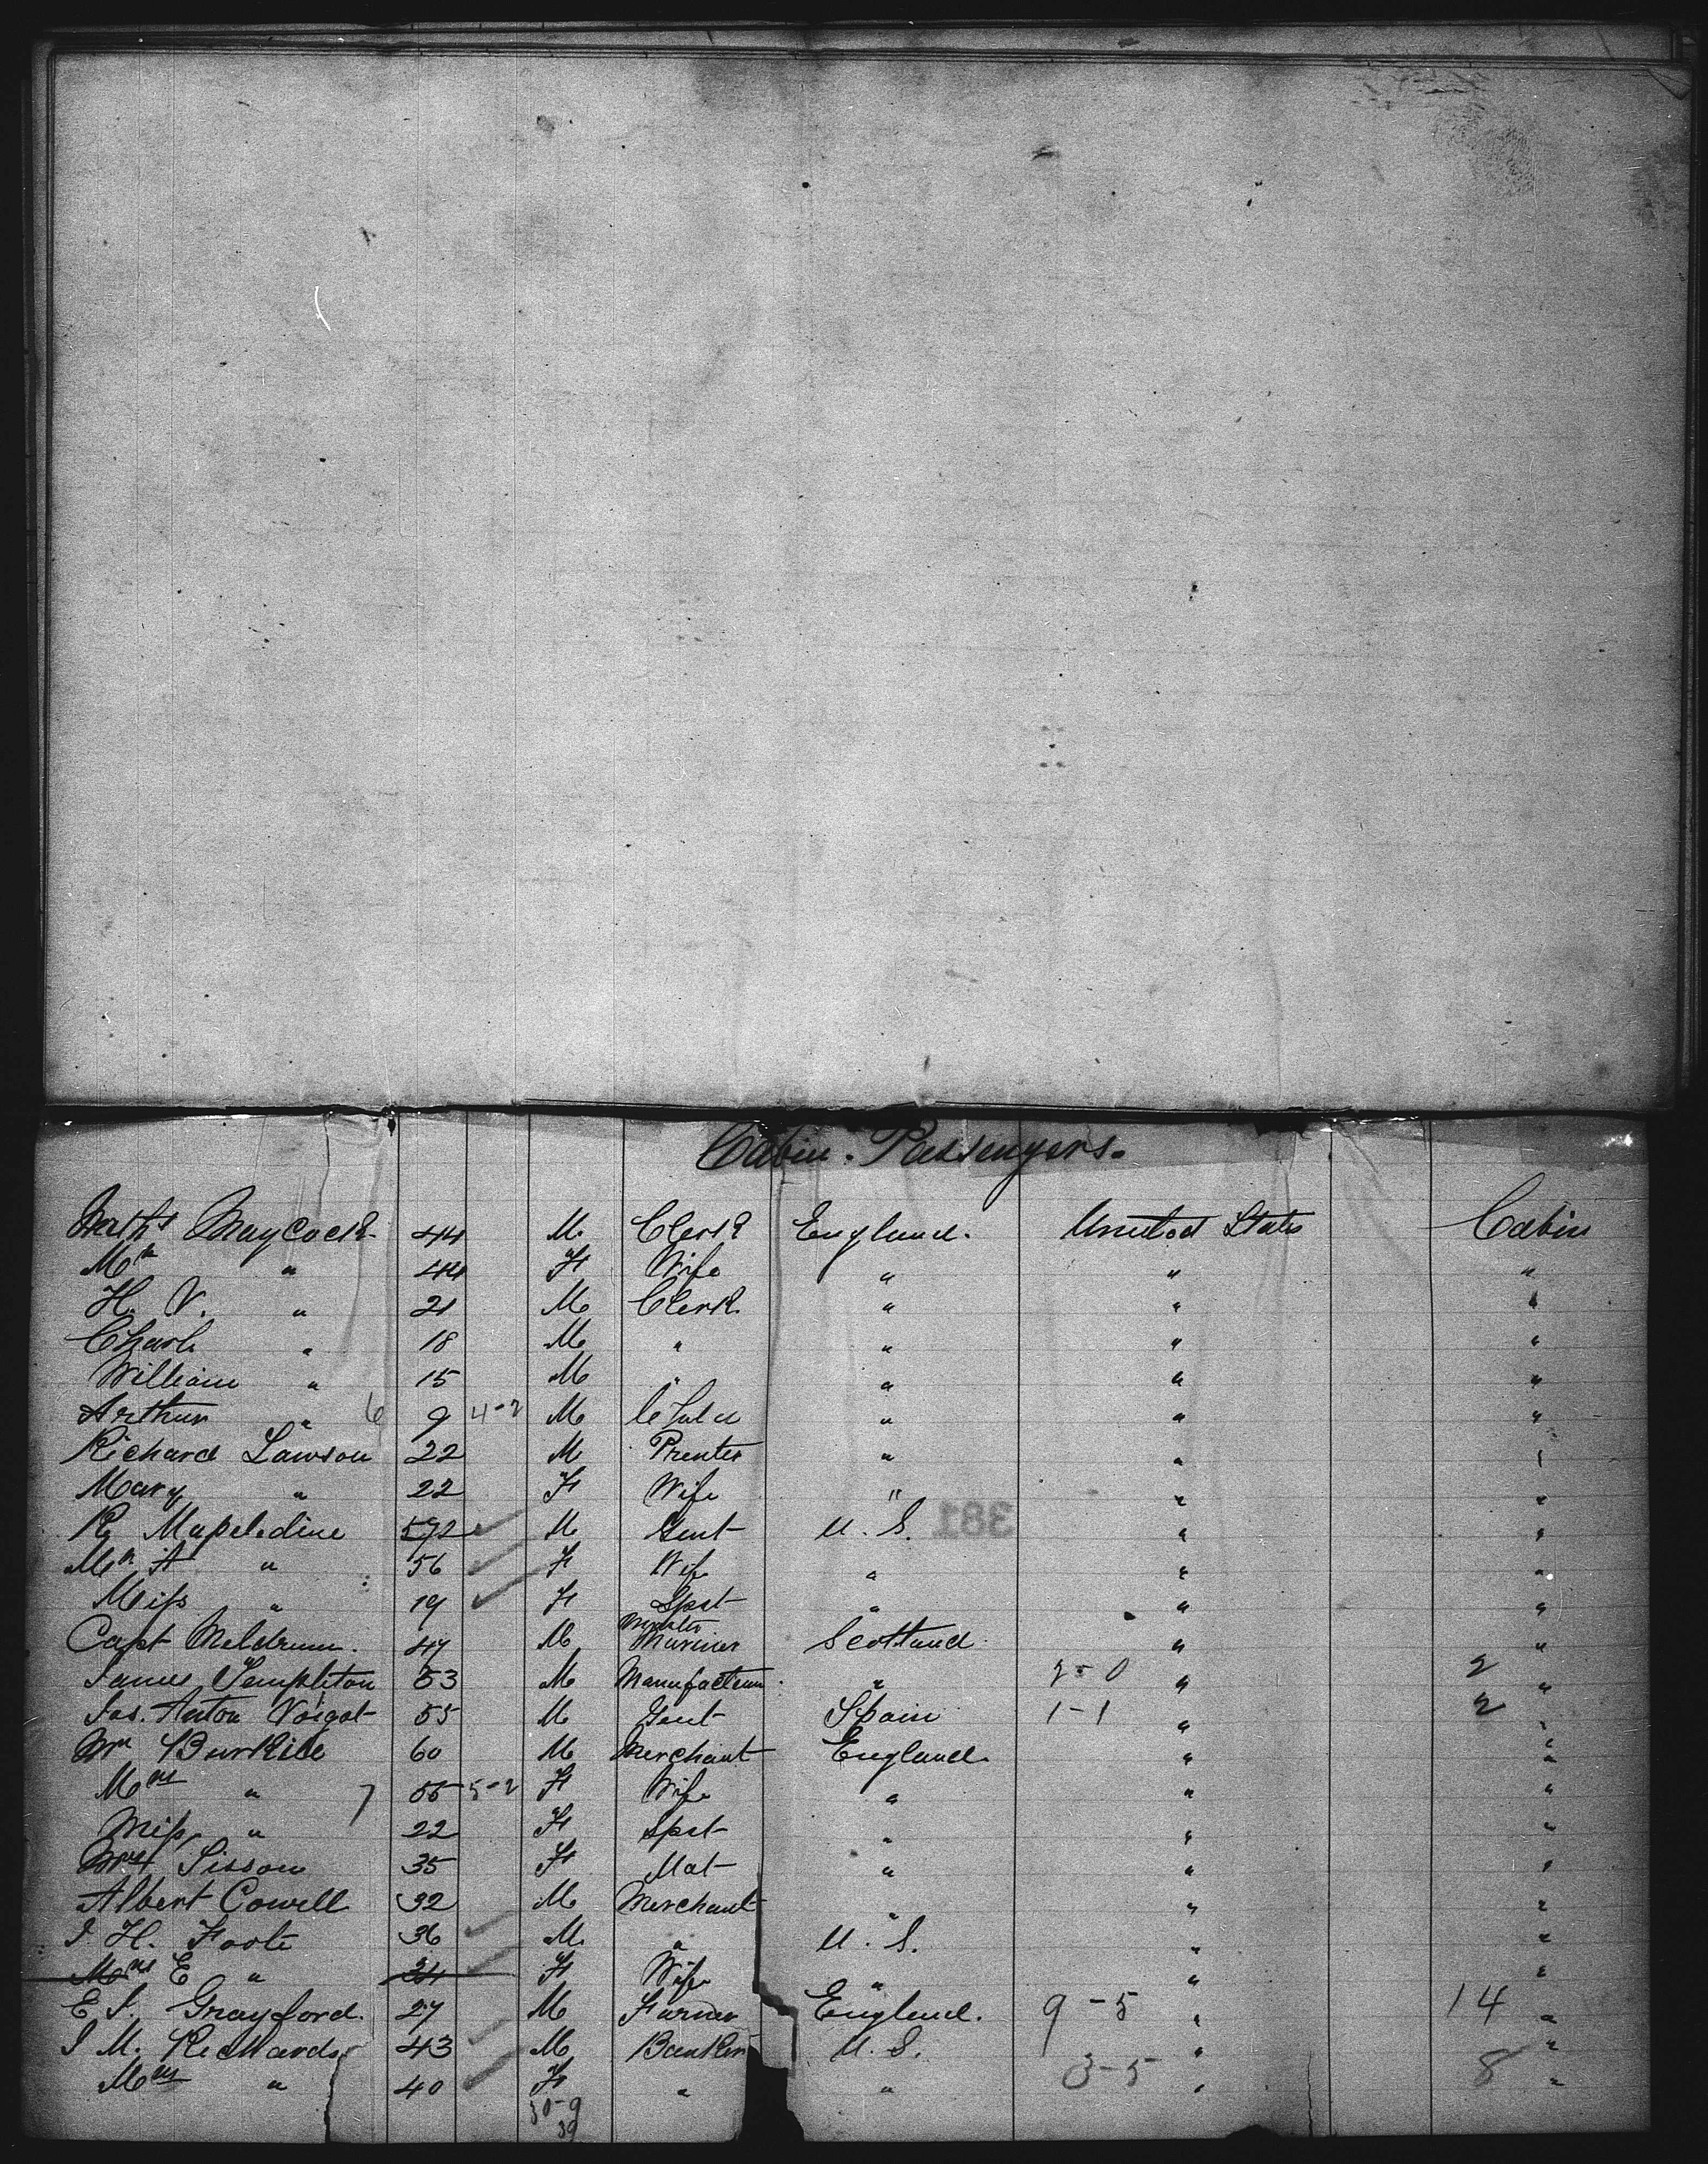 Cabin Passengers.
Maycock 44 M. Clerk England. United States Cabin
" 44 F Wife " " "
H. V. " 21 M Clerk " " "
Charls " 18 M " " " "
William " 15 M " " " "
Arthur " 6 9 4-2 M " " "
Richard Lawson 22 M Printer " " "
Mary " 22 F Wife " " "
R. Mapeledine M Gent U. S. 381 " "
A " 56 F Wife " " "
Miss " 19 F Spst " " "
Capt Meldrum. 47 M Mariner Scotland " "
James Templeton 53 M Manufacturer " 2-0 " 2 "
Jas. Anton 55 M Gent Spain 1-1 " 2 "
Wm Burkill 60 M Merchant England " "
Mrs " 7 55 5-2 F Wife " " "
Miss " 22 F Spst " " "
Sisson 35 F Mat " " "
Albert Cowell 32 M Merchant " " "
J. H. Foote 36 M " U. S. " "
Mrs E " F Wife " " "
E S. Grayford. 27 M Farmer England. 9-5 " 14 "
J M. Richards 43 M Banker U. S. " "
Mrs " 40 F " " 3-5 " 8 "
30-9
39